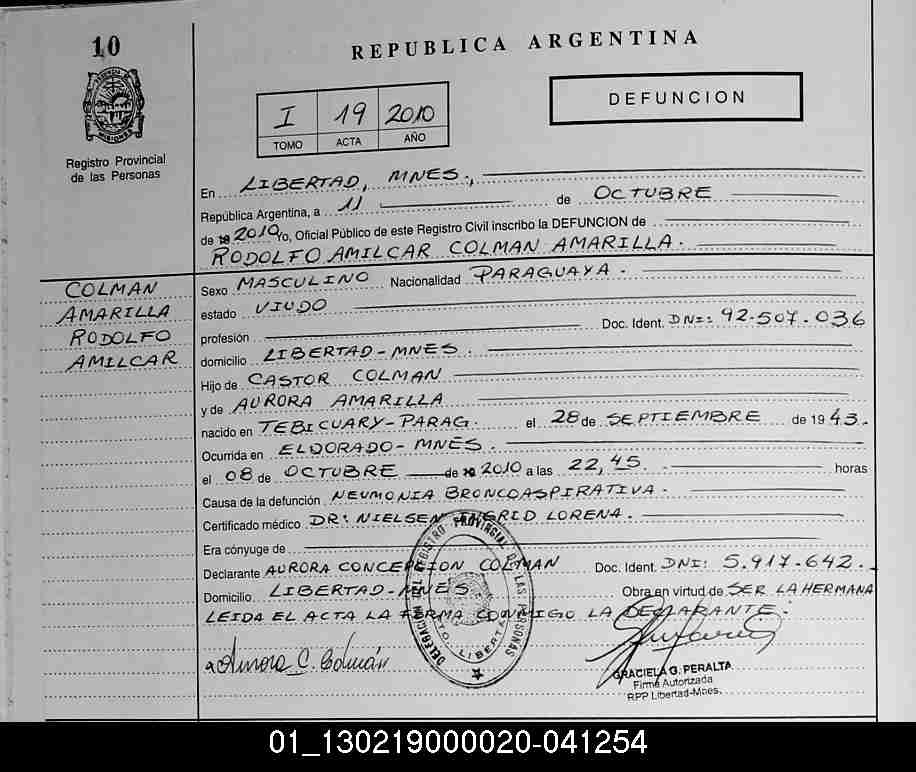 10
REPUBLICA ARGENTINA
DEFUNCION
I 19 2010
TOMO ACTA AÑO
Registro Provincial
de las Personas
En LIBERTAD, MNES.,
República Argentina, a 11 de OCTUBRE
de 2010 Yo, Oficial Público de este Registro Civil inscribo la DEFUNCION de
RODOLFO AMILCAR COLMAN AMARILLA.
COLMAN
AMARILLA
RODOLFO
AMILCAR
Sexo MASCULINO Nacionalidad PARAGUAYA.
estado VIUDO
profesión Doc. Ident. DNI: 92.507.036
domicilio LIBERTAD-MNES.
Hijo de CASTOR COLMAN
y de AURORA AMARILLA
nacido en TEBICUARY-PARAG. el 28 de SEPTIEMBRE de 1943.
Ocurrida en ELDORADO-MNES.
el 08 de OCTUBRE de 2010 a las 22,45. horas
Causa de la defunción NEUMONIA BRONCOASPIRATIVA.
Certificado médico DR: NIELSEN INGRID LORENA.
Era cónyuge de
Declarante AURORA CONCEPCION COLMAN Doc. Ident. DNI: 5.917.642.
Domicilio LIBERTAD-MNES Obra en virtud de SER LA HERMANA
LEIDA EL ACTA LA FIRMA CONMIGO LA DECLARANTE.
DELEGACION DEL REGISTRO PROVINCIAL DE LAS PERSONAS
LIBERTAD
Aurora C. Colmán
GRACIELA G. PERALTA
Firma Autorizada
RPP Libertad-Mnes.
01_130219000020-041254